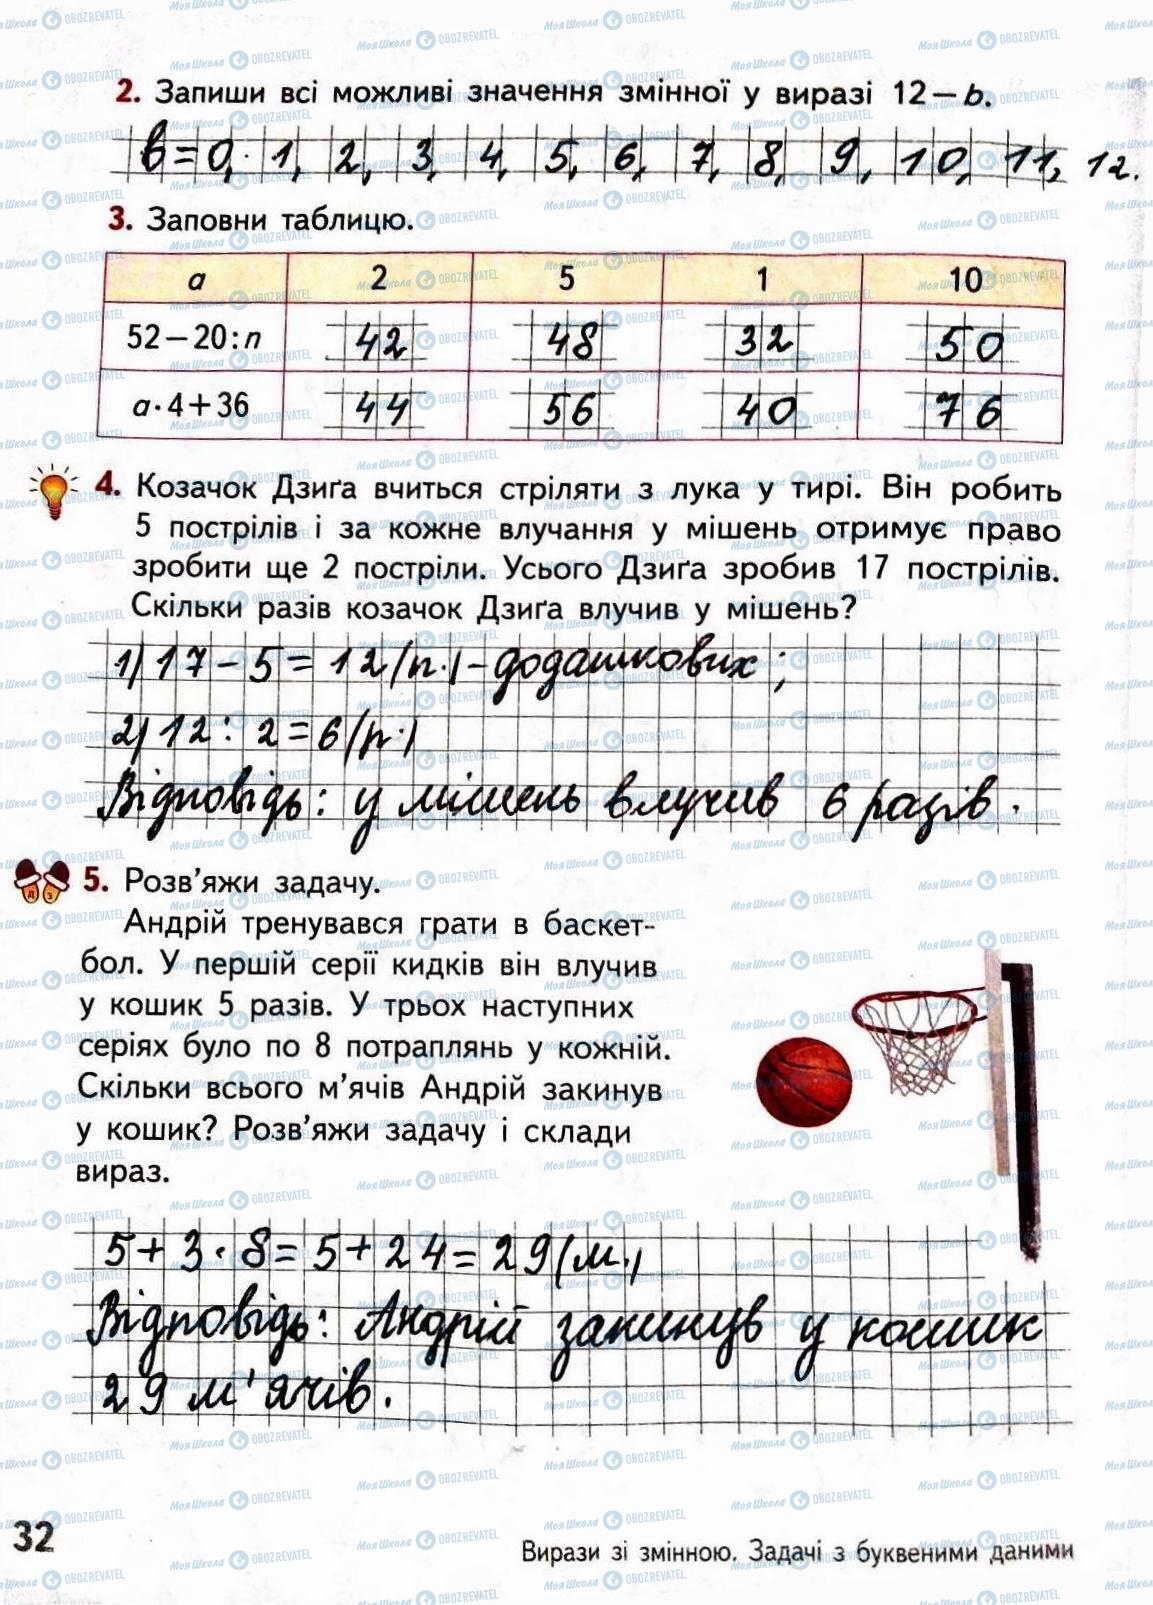 2. Запиши всі можливі значення змінної у виразі 12 – b.
b = 0, 1, 2, 3, 4, 5, 6, 7, 8, 9, 10, 11, 12.
3. Заповни таблицю.
a 2 5 1 10
52 – 20 : n 42 48 32 50
a · 4 + 36 44 56 40 76
4. Козачок Дзиґа вчиться стріляти з лука у тирі. Він робить
5 пострілів і за кожне влучання у мішень отримує право
зробити ще 2 постріли. Усього Дзиґа зробив 17 пострілів.
Скільки разів козачок Дзиґа влучив у мішень?
1) 17 – 5 = 12 (п.) – додашкових;
2) 12 : 2 = 6 (р.)
Відповідь: у мішень влучив 6 разів.
5. Розв’яжи задачу.
Андрій тренувався грати в баскет-
бол. У першій серії кидків він влучив
у кошик 5 разів. У трьох наступних
серіях було по 8 потраплянь у кожній.
Скільки всього м’ячів Андрій закинув
у кошик? Розв’яжи задачу і склади
вираз.
5 + 3 · 8 = 5 + 24 = 29 (м.)
Відповідь: Андрій закинув у кошик
29 м'ячів.
32
Вирази зі змінною. Задачі з буквеними даними
МояШкола OBOZREVATEL